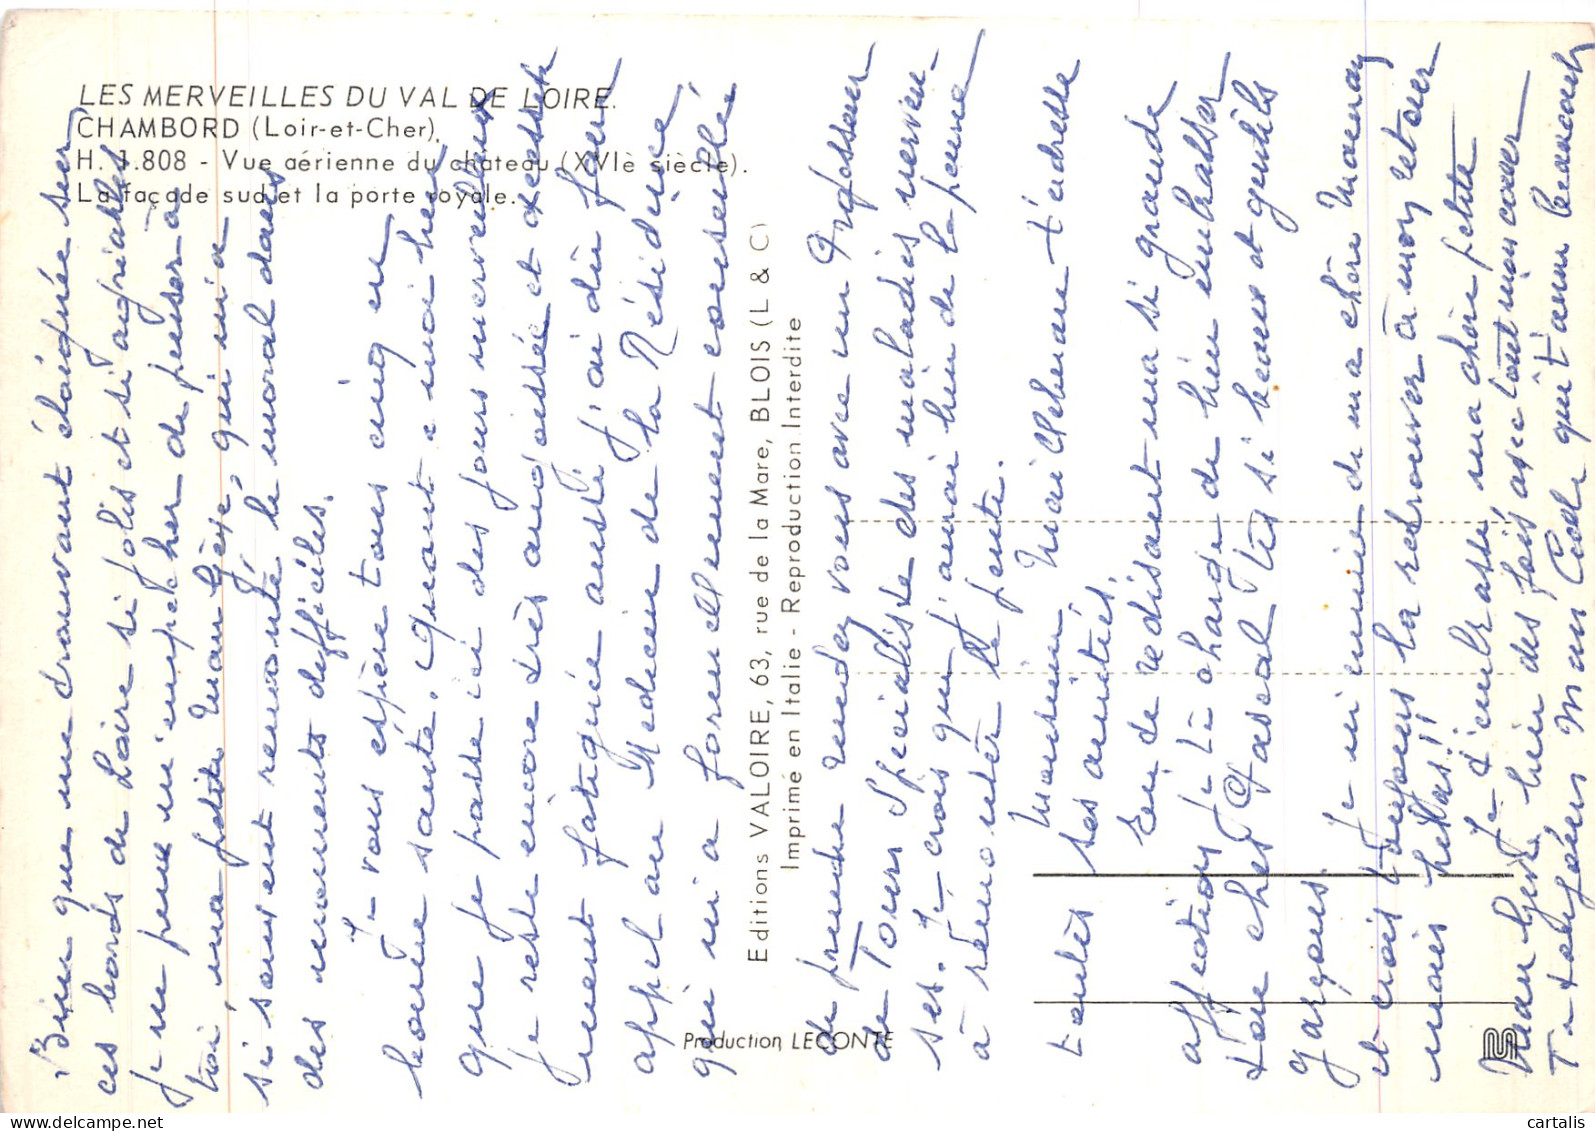 LES MERVEILLES DU VAL DE LOIRE.
CHAMBORD (Loir-et-Cher).
H. 1.808 - Vue aérienne du château (XVIè siècle).
La façade sud et la porte royale.
Editions VALOIRE, 63, rue de la Mare, BLOIS (L & C)
Imprimé en Italie - Reproduction Interdite
Production LECONTE
Bien que me trouvant éloignée sur
ces bords de Loire si jolis et si agréables
je ne peux m'empêcher de penser à
toi, ma petite Man Gète, qui m'a
si souvent remonté le moral dans
des moments difficiles.
Je vous espère tous cinq en
bonne santé. Quant à moi bien
que je passe ici des jours merveilleux
je reste encore très angoissée et
fatiguée aussi j'ai dû faire
appel au Medecin de la Résidence
qui m'a formellement conseillé
de prendre rendez vous avec un Professeur
de Tours Spécialiste des maladies nerveu-
ses. Je crois que j'aurai bien de la peine
à remonter la pente.
Monsieur t'adresse
toutes ses amitiés.
En te redisant ma si grande
affection je te charge de bien embrasser
ton cher Pascal tes si beaux et gentils
garçons.
Je m'ennuie de ma chère Maman
et crois toujours la retrouver à mon retour
mais hélas!!
Je t'embrasse, ma chère petite
Man Gète bien des fois avec tout mon cœur
Ta qui t'aime beaucoup
cartalis